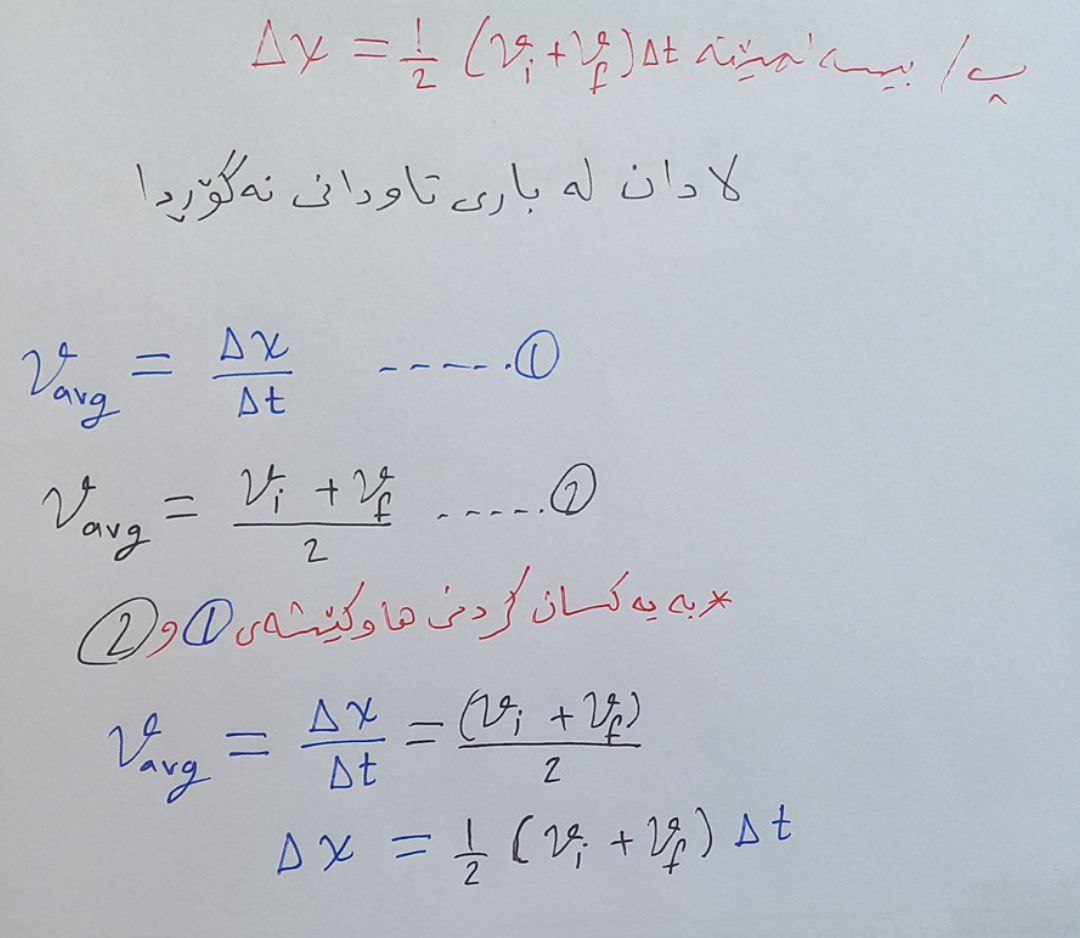 پ/ بیسەلمێنە Δx = 1/2 (vᵢ + v_f) Δt
لادان لە باری تاودانی نەگۆڕدا
v_avg = Δx/Δt ------①
v_avg = (vᵢ + v_f)/2 ------②
*بە یەکسان کردنی هاوکێشەی ① و ②
v_avg = Δx/Δt = (vᵢ + v_f)/2
Δx = 1/2 (vᵢ + v_f) Δt